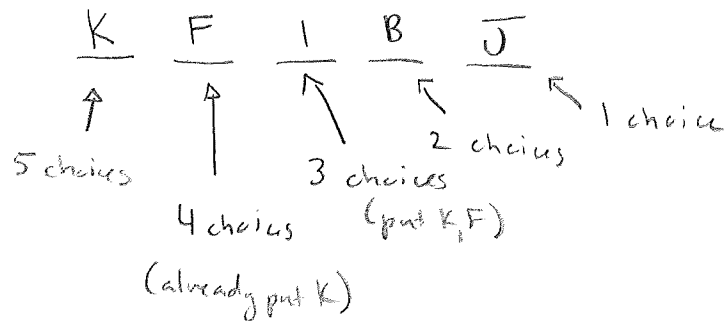 K F I B J
5 choices
4 choices
(already put K)
3 choices
(put K, F)
2 choices
1 choice